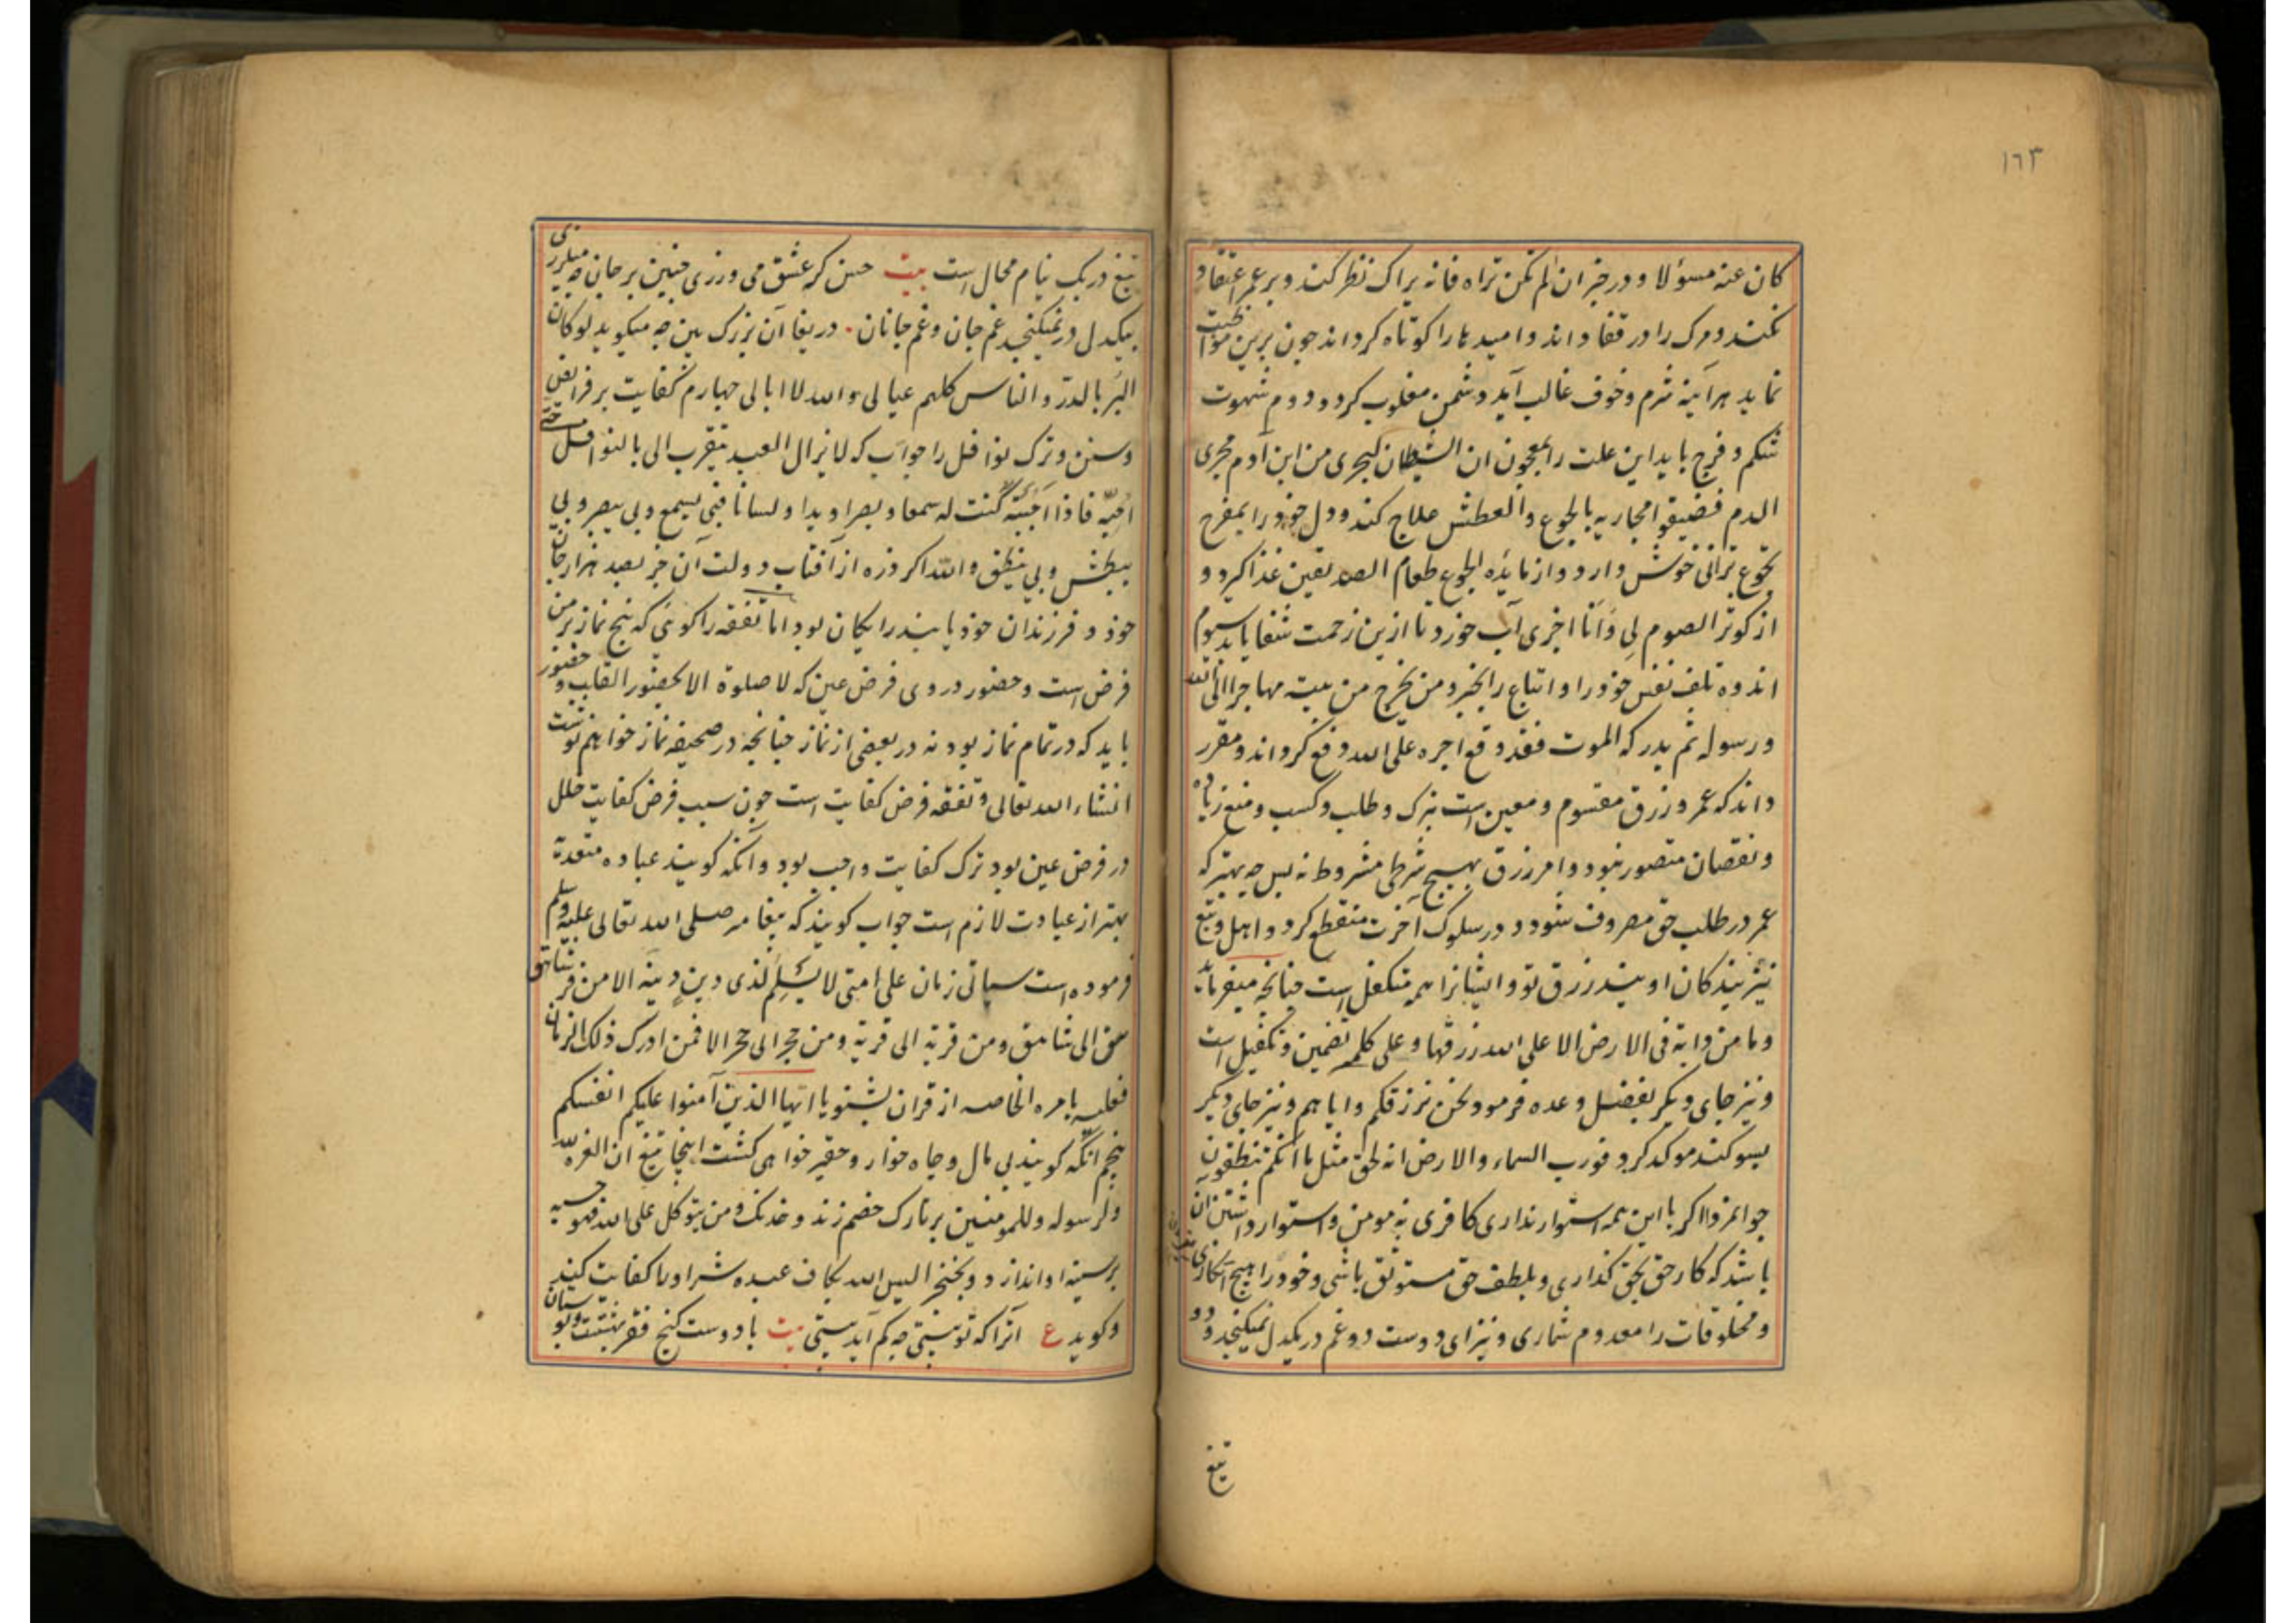 ١٦٣
كان عنه مسؤلا و در خبر ان لم تكن تراه فانه يراك نظر كند و بر عمر اعتقاد
نكند و مرك را در قفا داند و اميدها را كوتاه كرداند چون برين مواظبت
نمايد هر آينه شرم و خوف غالب آيد و دشمن مغلوب كردد دوم شهوت
شكم و فرج بايد اين علت را بمعجون ان الشيطان ليجرى من ابن آدم مجرى
الدم فضيقوا مجاريه بالجوع و العطش علاج كند و دل خود را بمفرح
تجوع ترانى خوش دارد و از مائده الجوع طعام الصديقين غذا كيرد و
از كوثر الصوم لى و انا اجزى آب خورد تا ازين زحمت شفا يابد سيوم
اندوه تلف نفس خود را و اتباع را بخبر و من يخرج من بيته مهاجرا الى الله
و رسوله ثم يدركه الموت فقد وقع اجره على الله دفع كرداند و مقرر
داند كه عمر و رزق مقسوم و معين است بترك و طلب و كسب و منع زياده
و نقصان متصور نبود و امر رزق بهيچ شرطى مشروط نه پس چه بهتر كه
عمر در طلب حق مصروف شود و در سلوك آخرت منقطع كردد و اهل و تبع
نيز بندكان اويند رزق تو و ايشانرا همه متكفل است چنانچه ميفرمايد
و ما من دابة فى الارض الا على الله رزقها و على كلمه تضمين و تكفيل است
و نيز جاى ديكر بفضل وعده فرمود نحن نرزقكم و اياهم و نيز جاى ديكر
بسوكند موكد كرد فورب السماء و الارض انه لحق مثل ما انكم تنطقون
جوانمردا اكر با اين همه استوار ندارى كافرى نه مومن و استوار داشتن آن
باشد كه كار حق بحق كذارى و بلطف حق مستوثق باشى و خود را هيچ انكارى
و مخلوقات را معدوم شمارى و نيز اى دوست دو غم در يكدل نميكنجد و دو
تيغ
تيغ در يك نيام محال است بيت حسن كر عشق مى ورزى چنين بر جان چه ميلرزى
بيكدل در نميكنجد غم جان و غم جانان . دريغا آن بزرك بين چه ميكويد لو كان
البر بالدر و الناس كلهم عيالى و الله لا ابالى چهارم كفايت بر فرايض
و سنن و ترك نوافل را جواب كه لا يزال العبد يتقرب الى بالنوافل حتى
احبه فاذا احببته كنت له سمعا و بصرا و يدا و لسانا فبى يسمع و بى يبصر و بى
يبطش و بى ينطق و الله اكر ذره از آفتاب دولت آن خبر بصد هزار جان
خود و فرزندان خود يابند رايكان بود اما تفقه را كوئى كه پنج نماز بر من
فرض است و حضور در وى فرض عين كه لا صلوة الا بحضور القلب و حضور
بايد كه در تمام نماز بود نه در بعضى از نماز چنانچه در صحيفه نماز خواهم نوشت
انشاء الله تعالى و تفقه فرض كفايت است چون سبب فرض كفايت خلل
در فرض عين بود ترك كفايت واجب بود و آنكه كويند عباده متعدية
بهتر از عبادت لازم است جواب كويند كه پيغامبر صلى الله تعالى عليه وسلم
فرموده است سياتى زمان على امتى لا يسلم لذى دين دينه الا من فر من شاهق
الى شاهق و من قرية الى قرية و من حجر الى حجر الا فمن ادرك ذلك الزمان
فعليه بامره الخاصه از قران بشنو يا ايها الذين آمنوا عليكم انفسكم
پنجم آنكه كويند بى مال و جاه خوار و حقير خواهى كشت اينجا تيغ ان العزة لله
و لرسوله و للمومنين بر تارك خصم زند و خدنك و من يتوكل على الله فهو حسبه
بر سينه او اندازد و بخنجر اليس الله بكاف عبده شر او را كفايت كند
و كويد ع آنرا كه تو بستى چه كم آيد بيت با دوست كنج فقر بهشتست و بوستان